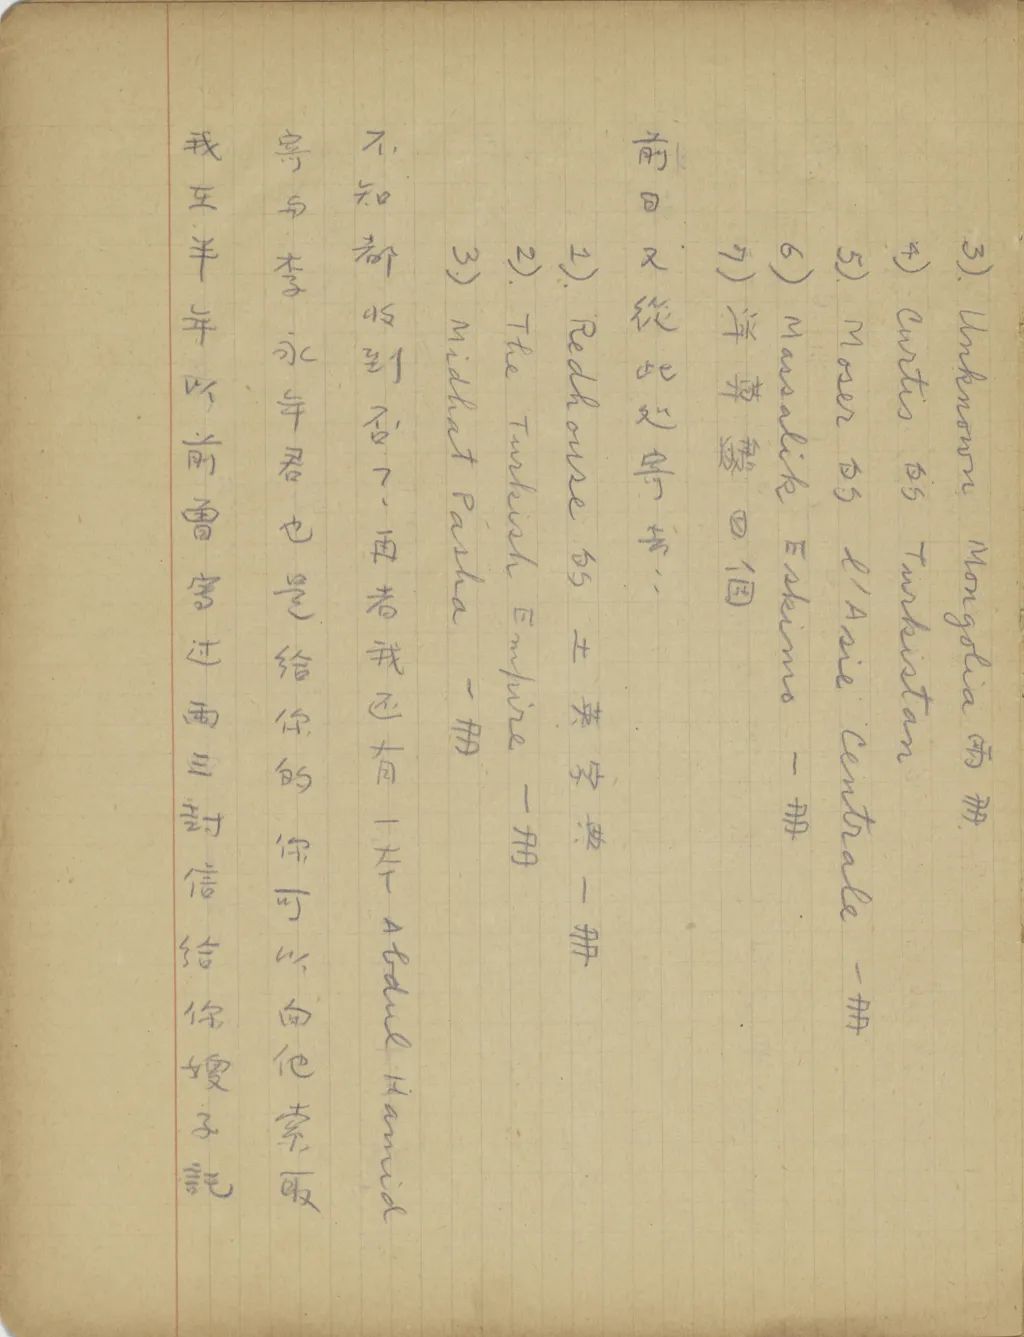 3). Unknown Mongolia 兩冊.
4) Curtis 的 Turkistan
5). Moser 的 l'Asie Centrale 一冊
6) Massalik Eskimo 一冊
7) 洋草盤四個
前日又從此边寄拆..
1). Redhouse 的土英字典一冊
2). The Turkish Empire 一冊
3) Midhat Pasha 一冊
不知都收到否? 再者我过有一本 Abdul Hamid
寄与李永年君也是给你的你可以向他索取
我在半年以前曾寫过兩三封信給你嫂子說